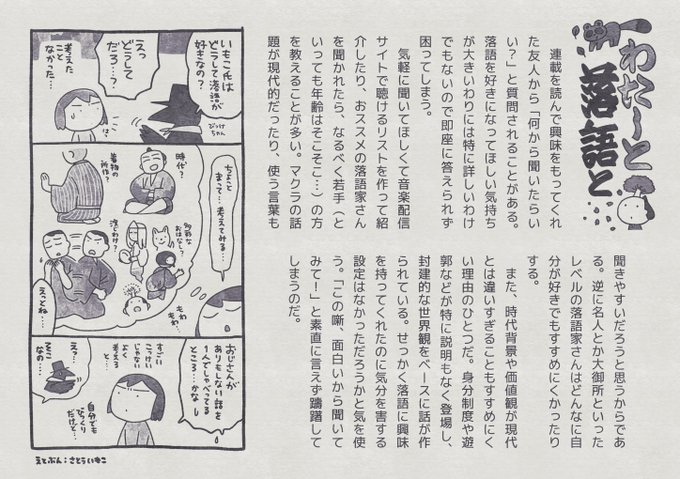 わたしと落語と
連載を読んで興味をもってくれ
た友人から「何から聞いたらい
い？」と質問されることがある。
落語を好きになってほしい気持ち
が大きいわりには特に詳しいわけ
でもないので即座に答えられず
困ってしまう。
気軽に聞いてほしくて音楽配信
サイトで聴けるリストを作って紹
介したり、おススメの落語家さん
を聞かれたら、なるべく若手（と
いっても年齢はそこそこ…）の方
を教えることが多い。マクラの話
題が現代的だったり、使う言葉も
聞きやすいだろうと思うからであ
る。逆に名人とか大御所といった
レベルの落語家さんはどんなに自
分が好きでもすすめにくかったり
する。
また、時代背景や価値観が現代
とは違いすぎることもすすめにく
い理由のひとつだ。身分制度や遊
郭などが特に説明もなく登場し、
封建的な世界観をベースに話が作
られている。せっかく落語に興味
を持ってくれたのに気分を害する
設定はなかっただろうかと気を使
う。「この噺、面白いから聞いて
みて！」と素直に言えず躊躇して
しまうのだ。
いもこ氏は
どうして落語が
好きなの？
びっけ
ちゃん
えっ
どうして
だろ…？
考えた
こと
なかった…
ちょっと
まって…考えてみる…
時代？
着物の
所作？
多彩な
おはなし？
演じわけ？
もわ
もわ
えっとね…
おじさんが
ありもしない話を
1人でしゃべってる
ところ…かなし
すごい
こっけい
じゃない
よく
考えると
えっ…
そこ
なの…
自分でも
びっくり
だけど…
えとぶん：さとういもこ